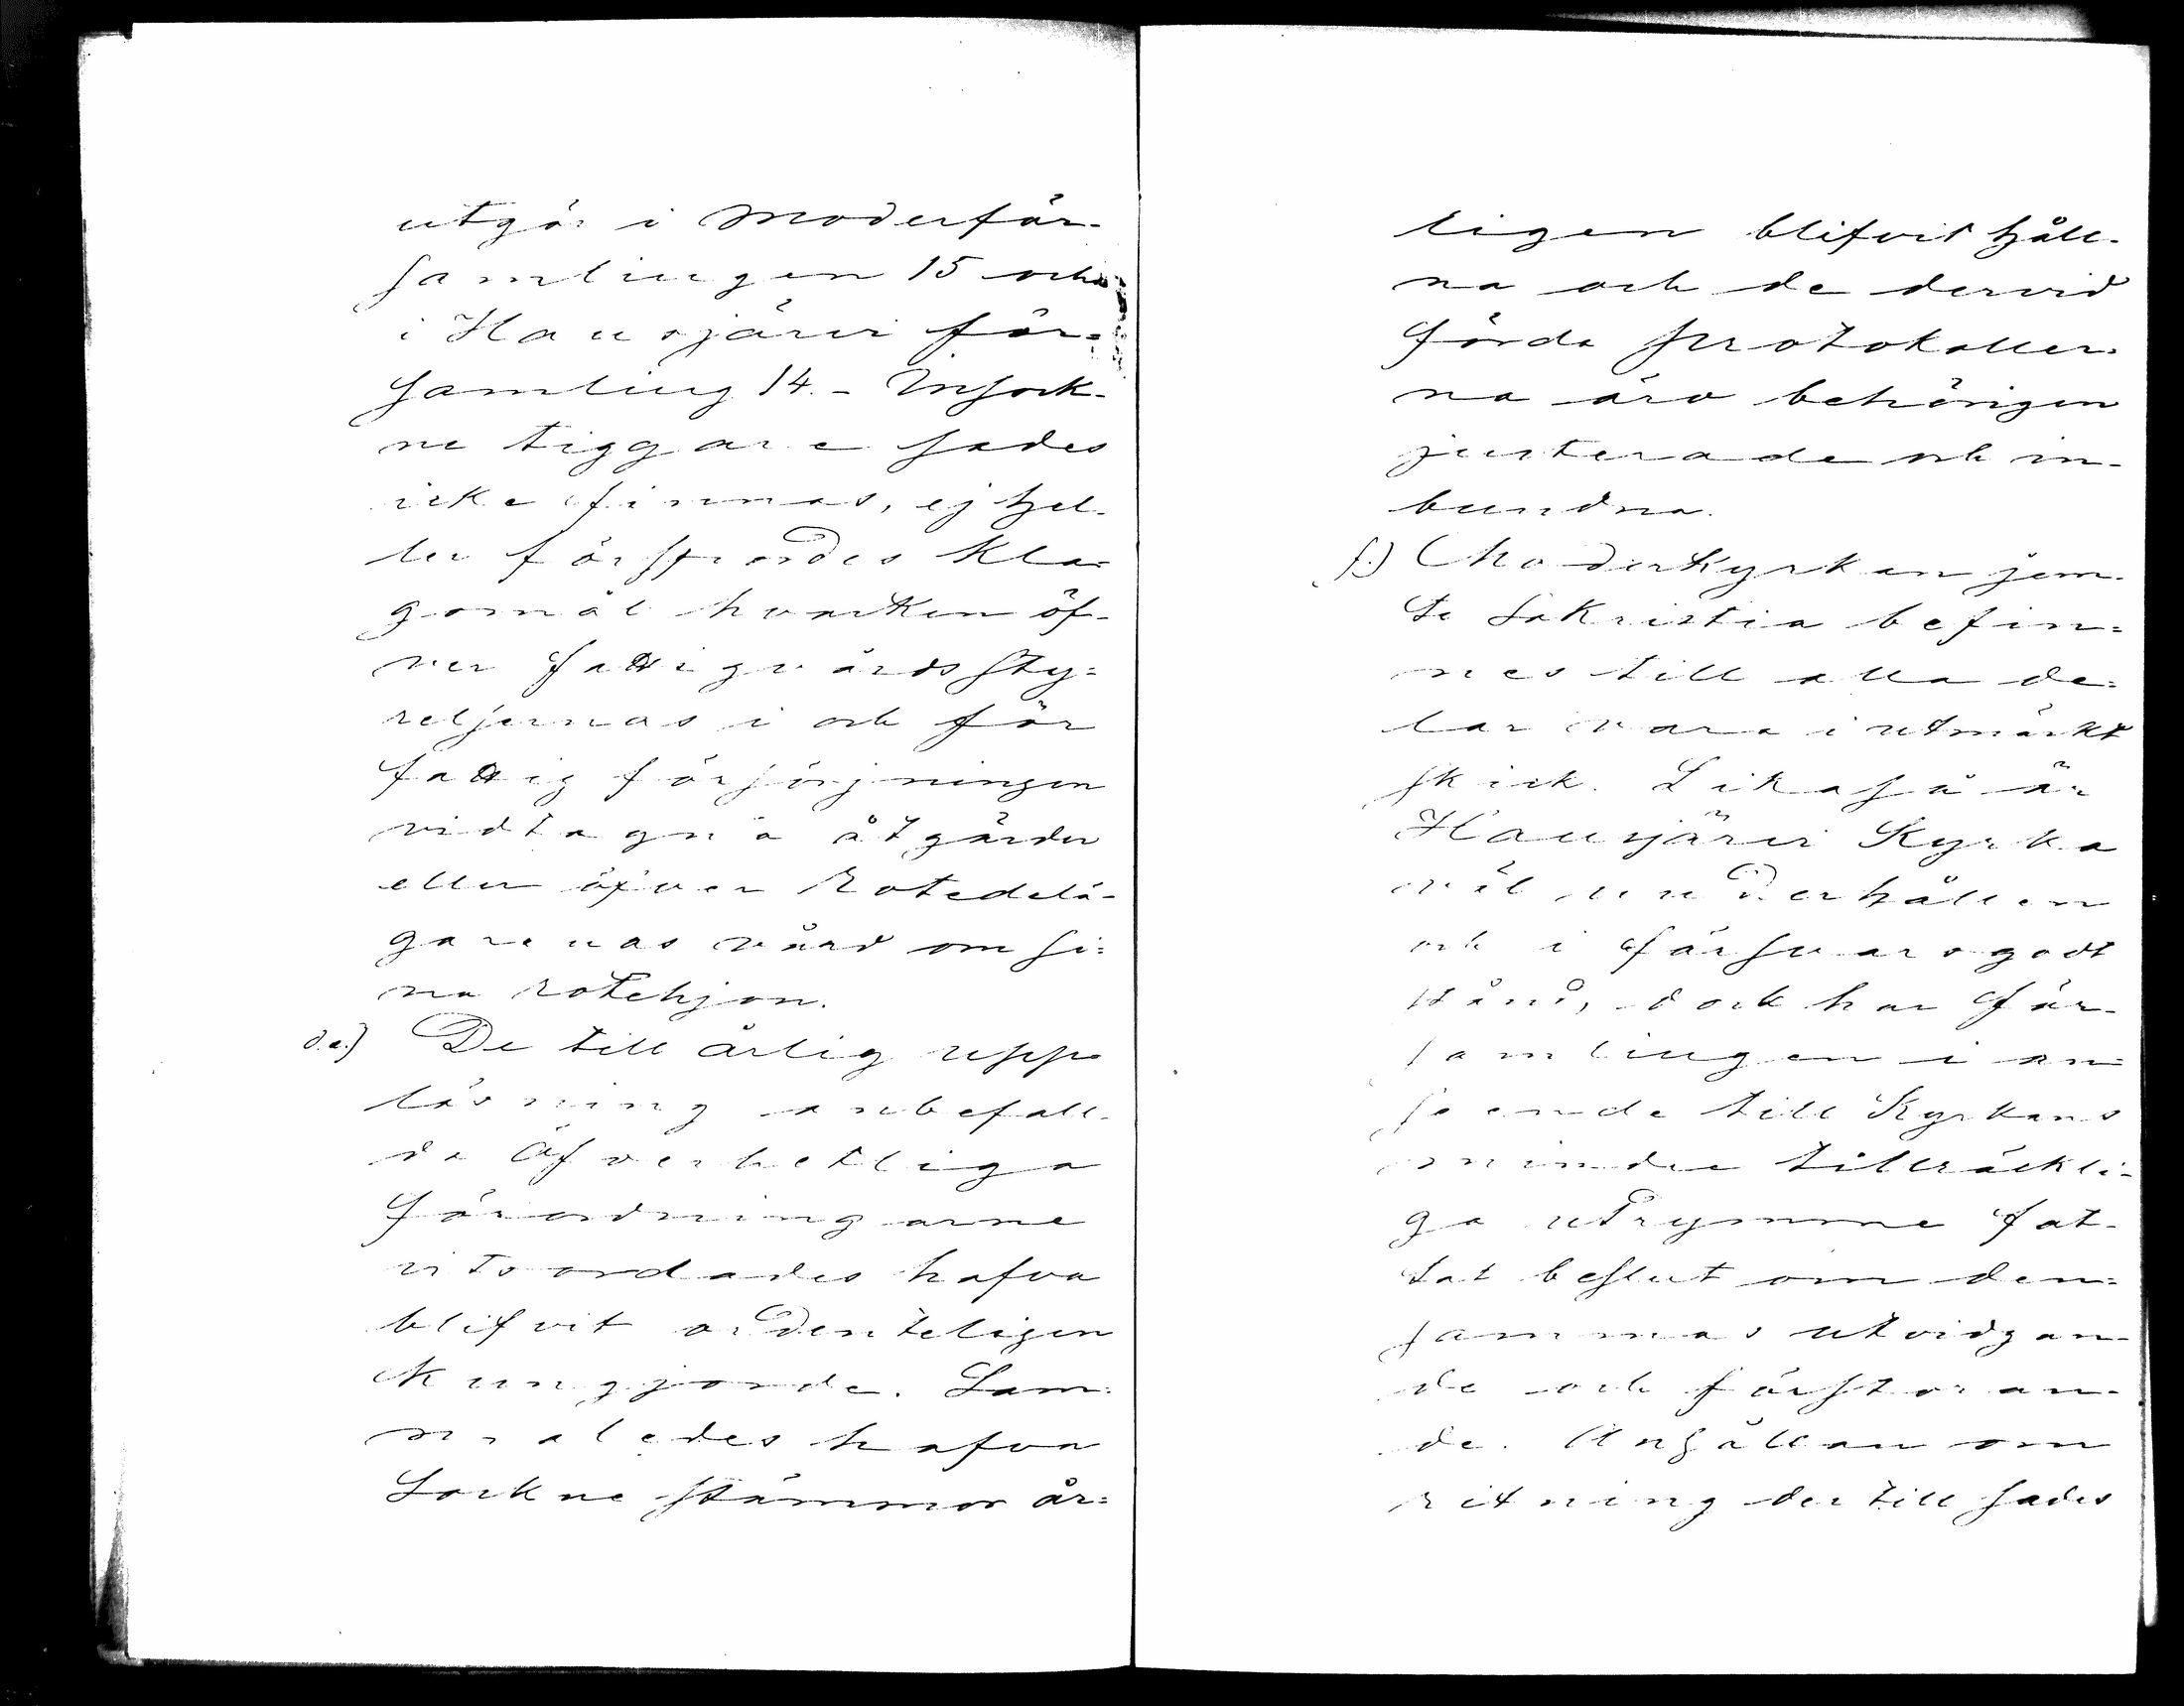 utgör i Moderför-
samlingen 15 och
i Hausjärvi för=
samling 14. - Insock-
ne tiggare sades
icke finnas, ej hel-
ler förspordes kla=
gomål hvarken öf-
ver fattigvårdssty=
relsernas i och för
fattigförsörjningen
vidtagna åtgärder
eller öfver Rotedelä-
garenas vård om si=
na rotehjon.
d.e.) De till årlig upp-
läsning anbefall-
da Öfverhetliga
förordningarne
vitsordades hafva
blifvit ordenteligen
kungjorde. Sam-
maledes hafva
Sockne stämmor år=
ligen blifvit håll-
na och de dervid
förda protokoller-
na äro behörigen
justerade och in-
bundna.
f.) Moderkyrkan jem-
te Sakristia befin=
nes till alla de=
lar vara i utmärkt
skick. Likaså är
Hausjärvi Kyrka
väl underhållen
och i försvarsgodt
stånd, dock har för-
samlingen i an=
seende till Kyrkans
mindre tillräckli-
ga utrymme fat-
tat beslut om den=
sammas utvidgan-
de och förstoran-
de. Anhållan om
ritning dertill sades